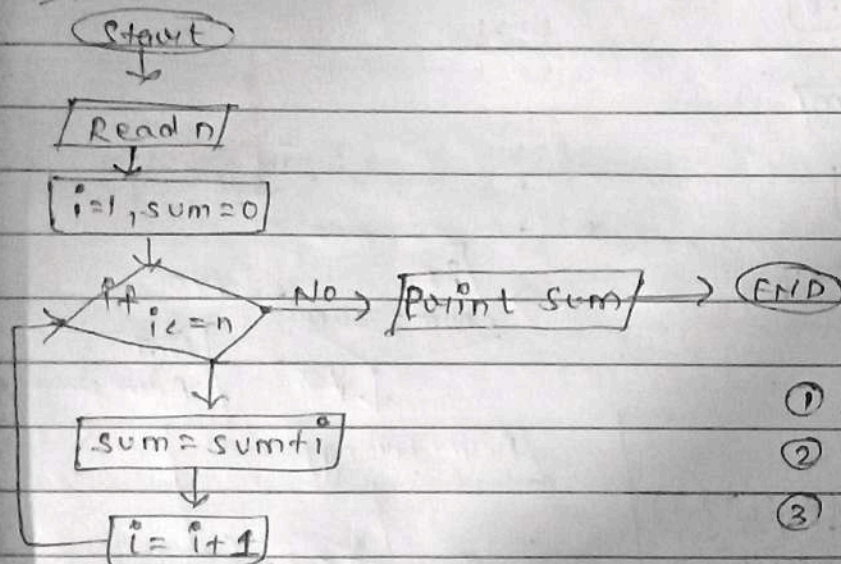 Start
Read n
i=1, sum=0
if i<=n
NO
Print sum
END
sum = sum+i
i = i+1
①
②
③